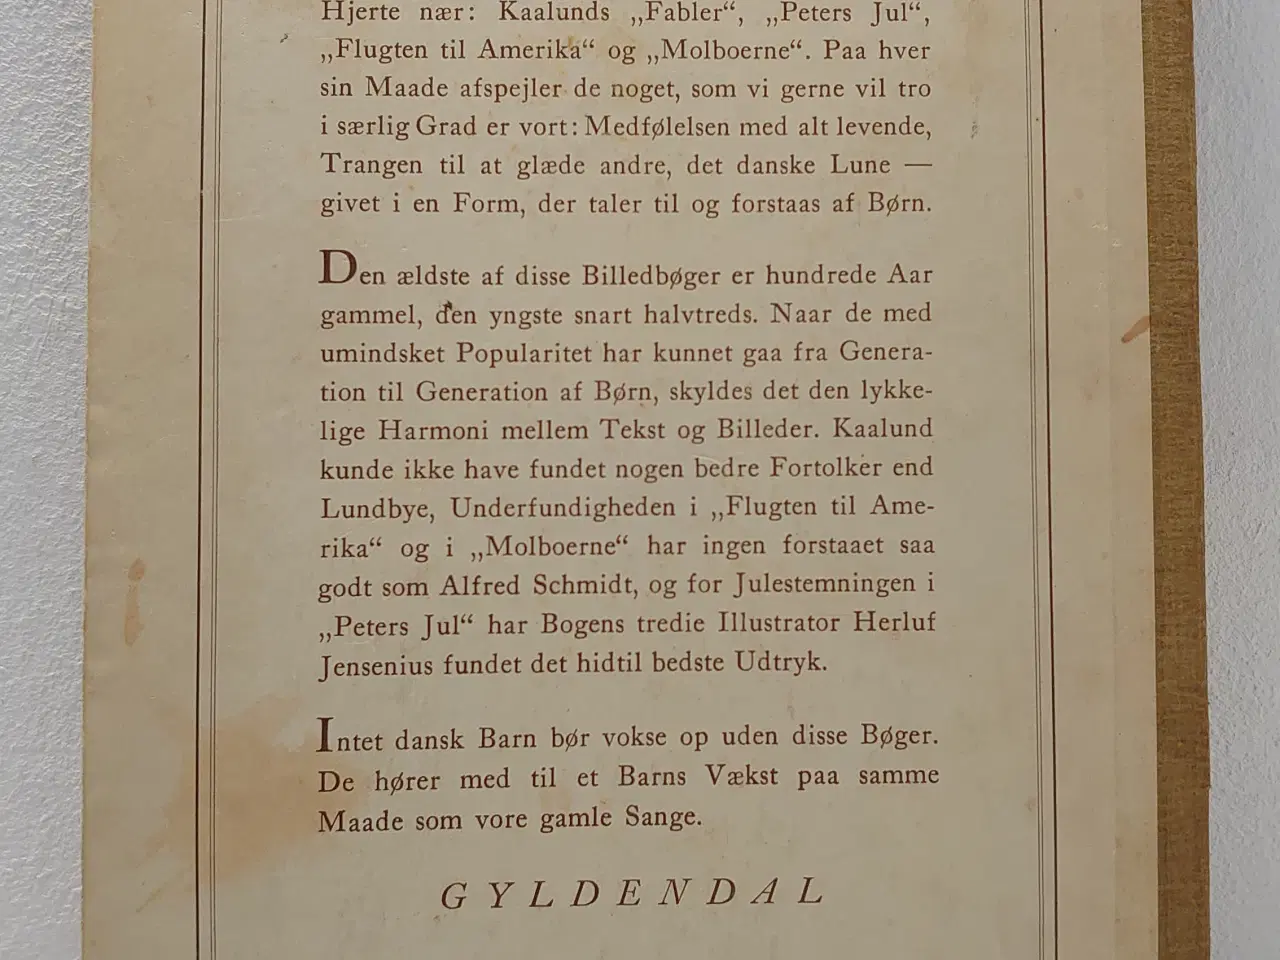 Hjerte nær: Kaalunds „Fabler“, „Peters Jul“,
„Flugten til Amerika“ og „Molboerne“. Paa hver
sin Maade afspejler de noget, som vi gerne vil tro
i særlig Grad er vort: Medfølelsen med alt levende,
Trangen til at glæde andre, det danske Lune —
givet i en Form, der taler til og forstaas af Børn.
Den ældste af disse Billedbøger er hundrede Aar
gammel, den yngste snart halvtreds. Naar de med
umindsket Popularitet har kunnet gaa fra Genera-
tion til Generation af Børn, skyldes det den lykke-
lige Harmoni mellem Tekst og Billeder. Kaalund
kunde ikke have fundet nogen bedre Fortolker end
Lundbye, Underfundigheden i „Flugten til Ame-
rika“ og i „Molboerne“ har ingen forstaaet saa
godt som Alfred Schmidt, og for Julestemningen i
„Peters Jul“ har Bogens tredie Illustrator Herluf
Jensenius fundet det hidtil bedste Udtryk.
Intet dansk Barn bør vokse op uden disse Bøger.
De hører med til et Barns Vækst paa samme
Maade som vore gamle Sange.
GYLDENDAL